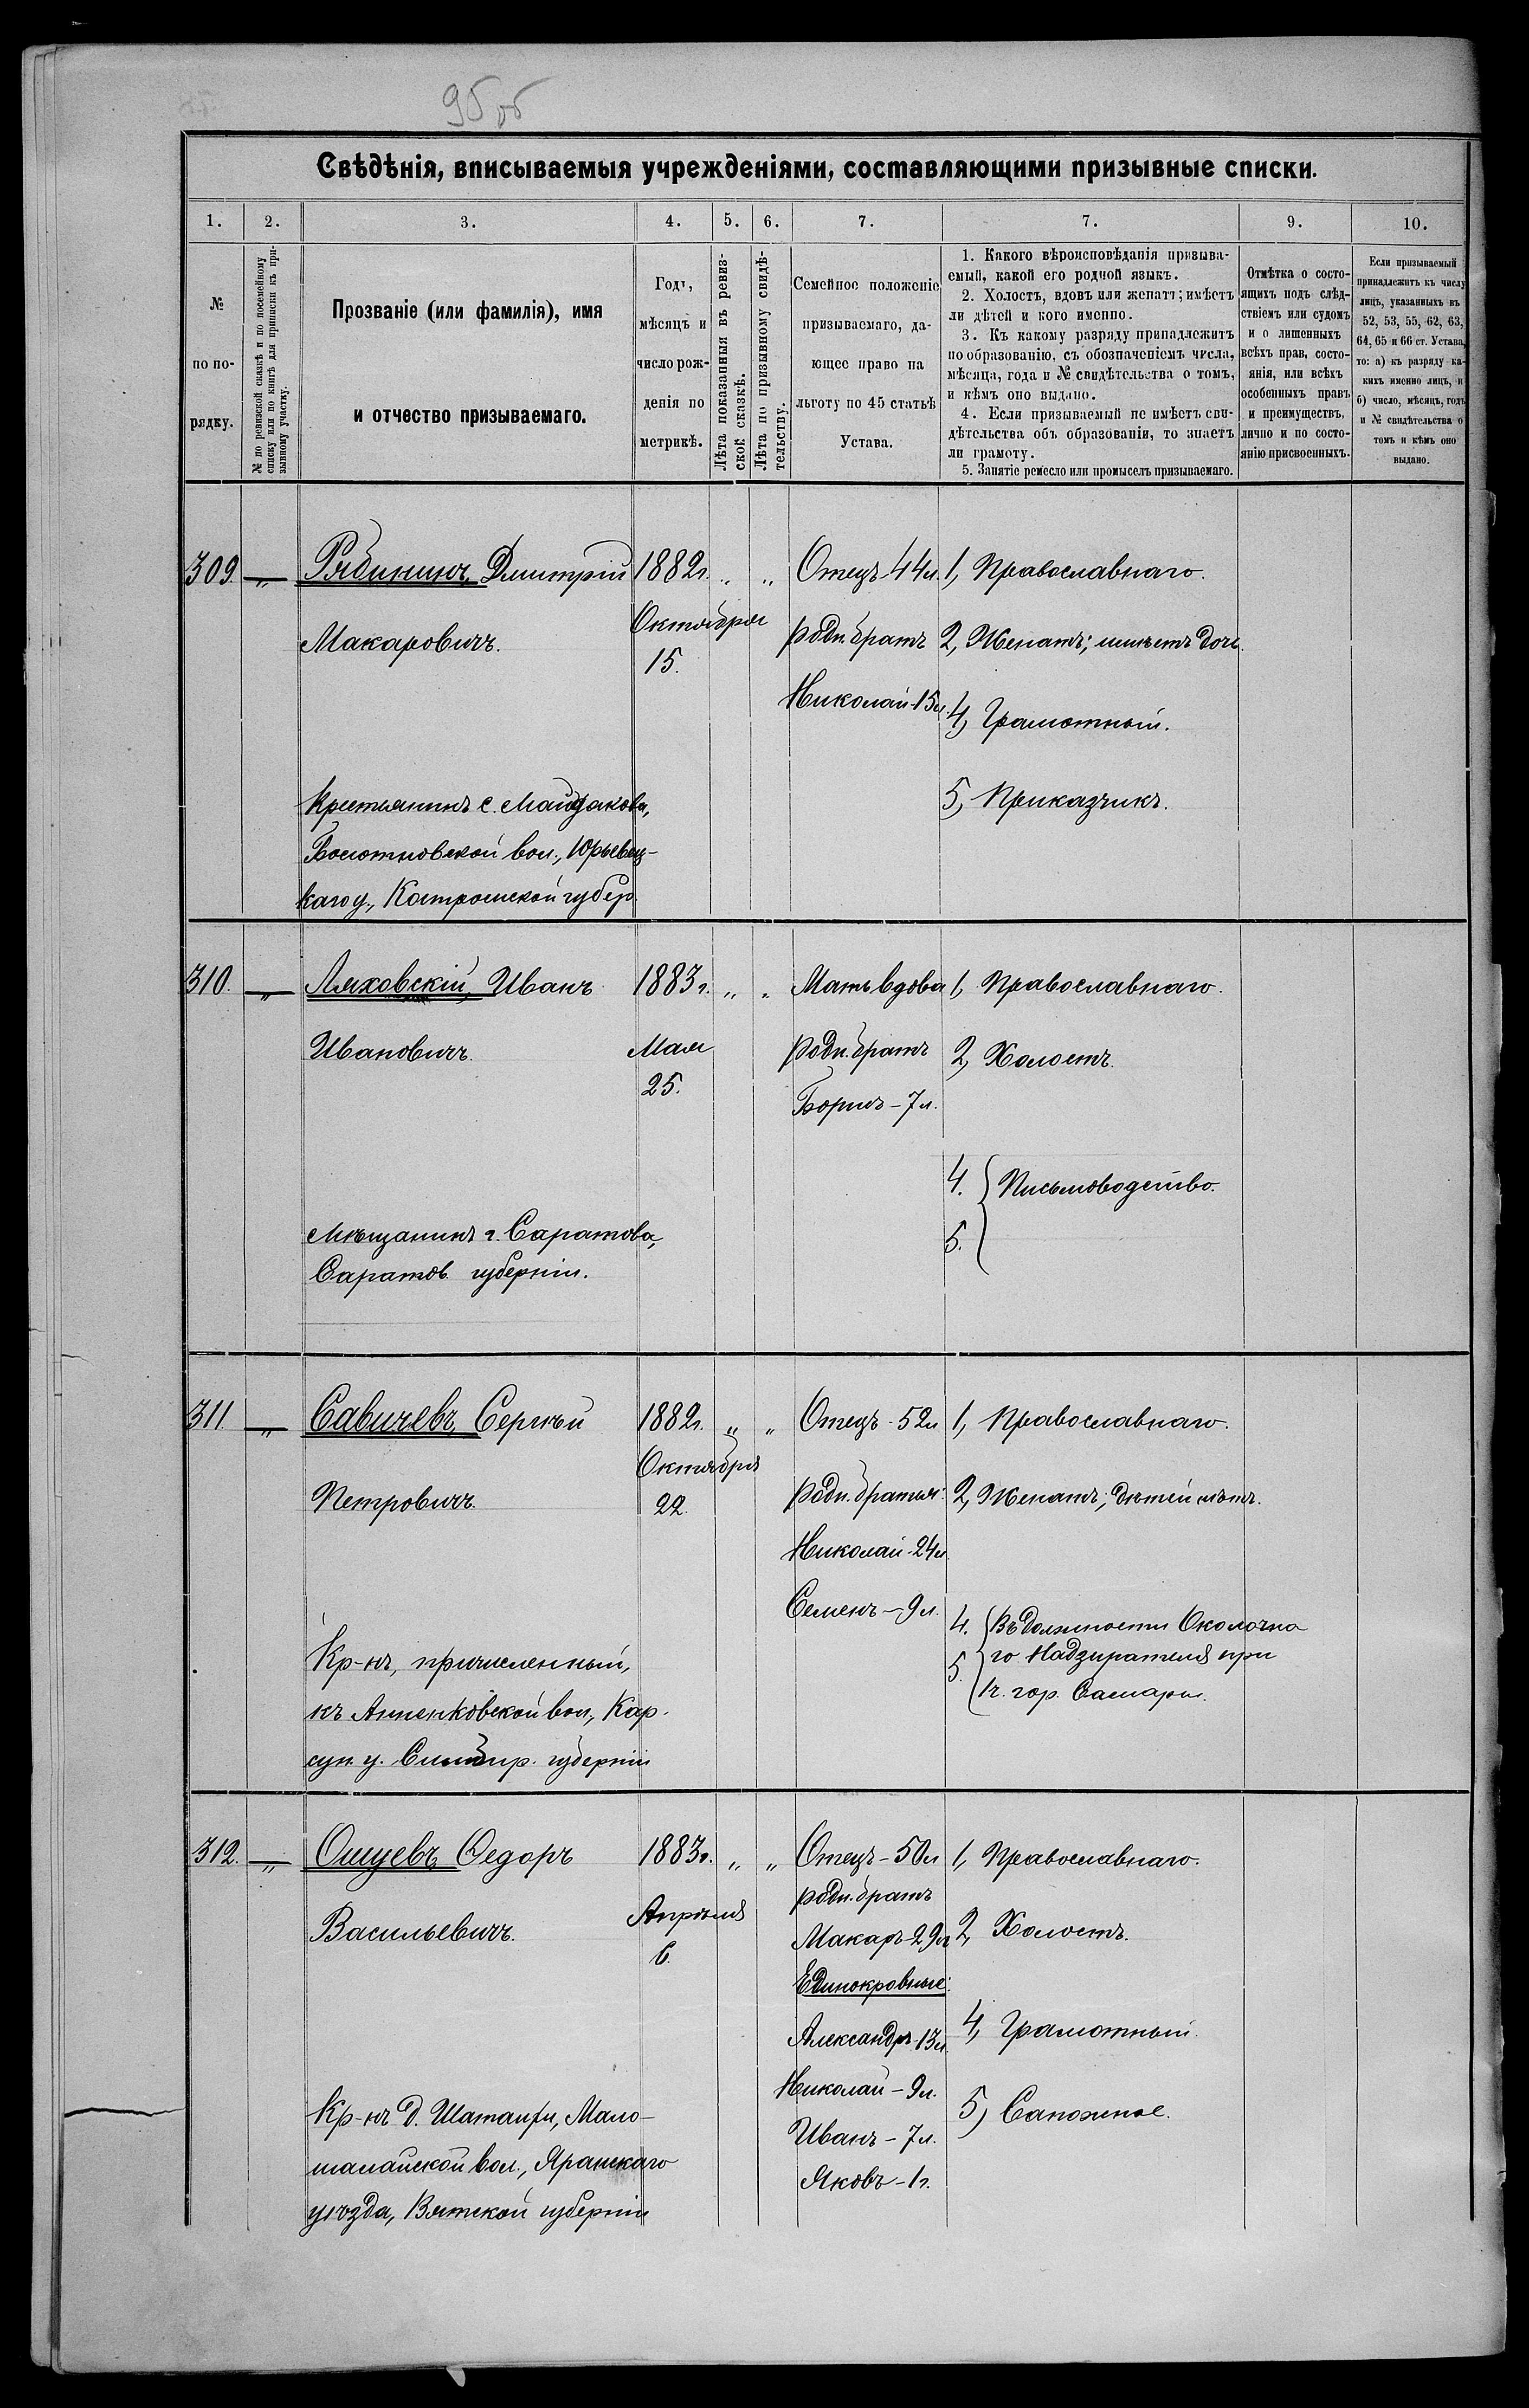 95 об
Свѣдѣнія, вписываемыя учрежденіями, составляющими призывные списки.
1. 2. 3. 4. 5. 6. 7. 7. 9. 10.
№
по по-
рядку.
№ по ревизской сказкѣ и по посемейному
списку или по книгѣ для приписки къ при-
зывному участку.
Прозваніе (или фамилія), имя
и отчество призываемаго.
Годъ,
мѣсяцъ и
число рож-
денія по
метрикѣ.
Лѣта показанныя въ ревиз-
ской сказкѣ.
Лѣта по призывному свидѣ-
тельству.
Семейное положеніе
призываемаго, да-
ющее право на
льготу по 45 статьѣ
Устава.
1. Какого вѣроисповѣданія призыва-
емый, какой его родной языкъ.
2. Холостъ, вдовъ или женатъ; имѣетъ
ли дѣтей и кого именно.
3. Къ какому разряду принадлежитъ
по образованію, съ обозначеніемъ числа,
мѣсяца, года и № свидѣтельства о томъ,
и кѣмъ оно выдано.
4. Если призываемый не имѣетъ сви-
дѣтельства объ образованіи, то знаетъ
ли грамоту.
5. Занятіе ремесло или промыселъ призываемаго.
Отмѣтка о состо-
ящихъ подъ слѣд-
ствіемъ или судомъ
и о лишенныхъ
всѣхъ прав, состо-
янія, или всѣхъ
особенныхъ правъ
и преимуществъ,
лично и по состо-
янію присвоенныхъ.
Если призываемый
принадлежитъ къ числу
лицъ, указанныхъ въ
52, 53, 55, 62, 63,
64, 65 и 66 ст. Устава,
то: а) къ разряду ка-
кихъ именно лицъ, и
б) число, мѣсяцъ, годъ
и № свидѣтельства о
томъ и кѣмъ оно
выдано.
309. „ Рябининъ, Дмитрій
Макаровичъ.
Крестьянинъ с. Майдакова,
Болотновской вол., Юрьевец-
каго у., Костромской губер.
1882г.
Октября
15.
„ „
Отецъ-44л.
родн. братъ
Николай-15л.
1, Православнаго.
2, Женатъ; имѣетъ дочь.
4, Грамотный.
5, Приказчикъ.
310. „ Ляховскій, Иванъ
Ивановичъ.
Мѣщанинъ г. Саратова,
Саратов. губерніи.
1883г.
Мая
25.
„ „
Мать вдова
родн. братъ
Борисъ-7л.
1, Православнаго.
2, Холостъ.
4. Письмоводство.
5.
311. „ Савичевъ, Сергѣй
Петровичъ.
Кр-нъ, причисленный,
къ Анненковской вол., Кар-
сун. у. Симбир. губерніи
1882г.
Октября
22.
„ „
Отецъ-52л
родн. братья:
Николай-24л
Семенъ-9л.
1, Православнаго.
2, Женатъ, дѣтей нѣтъ.
4. Въ должности Околочна
5. го Надзирателя при
1ч. гор. Самары.
312. „ Ошуевъ Федоръ
Васильевичъ.
Кр-нъ д. , Мало-
шалайской вол., Яранскаго
уѣзда, Вятской губерніи
1883г.
Апрѣля
6.
„ „
Отецъ-50л
родн. братъ
Макаръ-29л
Единокровные:
Александръ-13л.
Николай-9л.
Иванъ-7л.
Яковъ-1г.
1, Православнаго.
2, Холостъ.
4, Грамотный.
5, Сапожное.